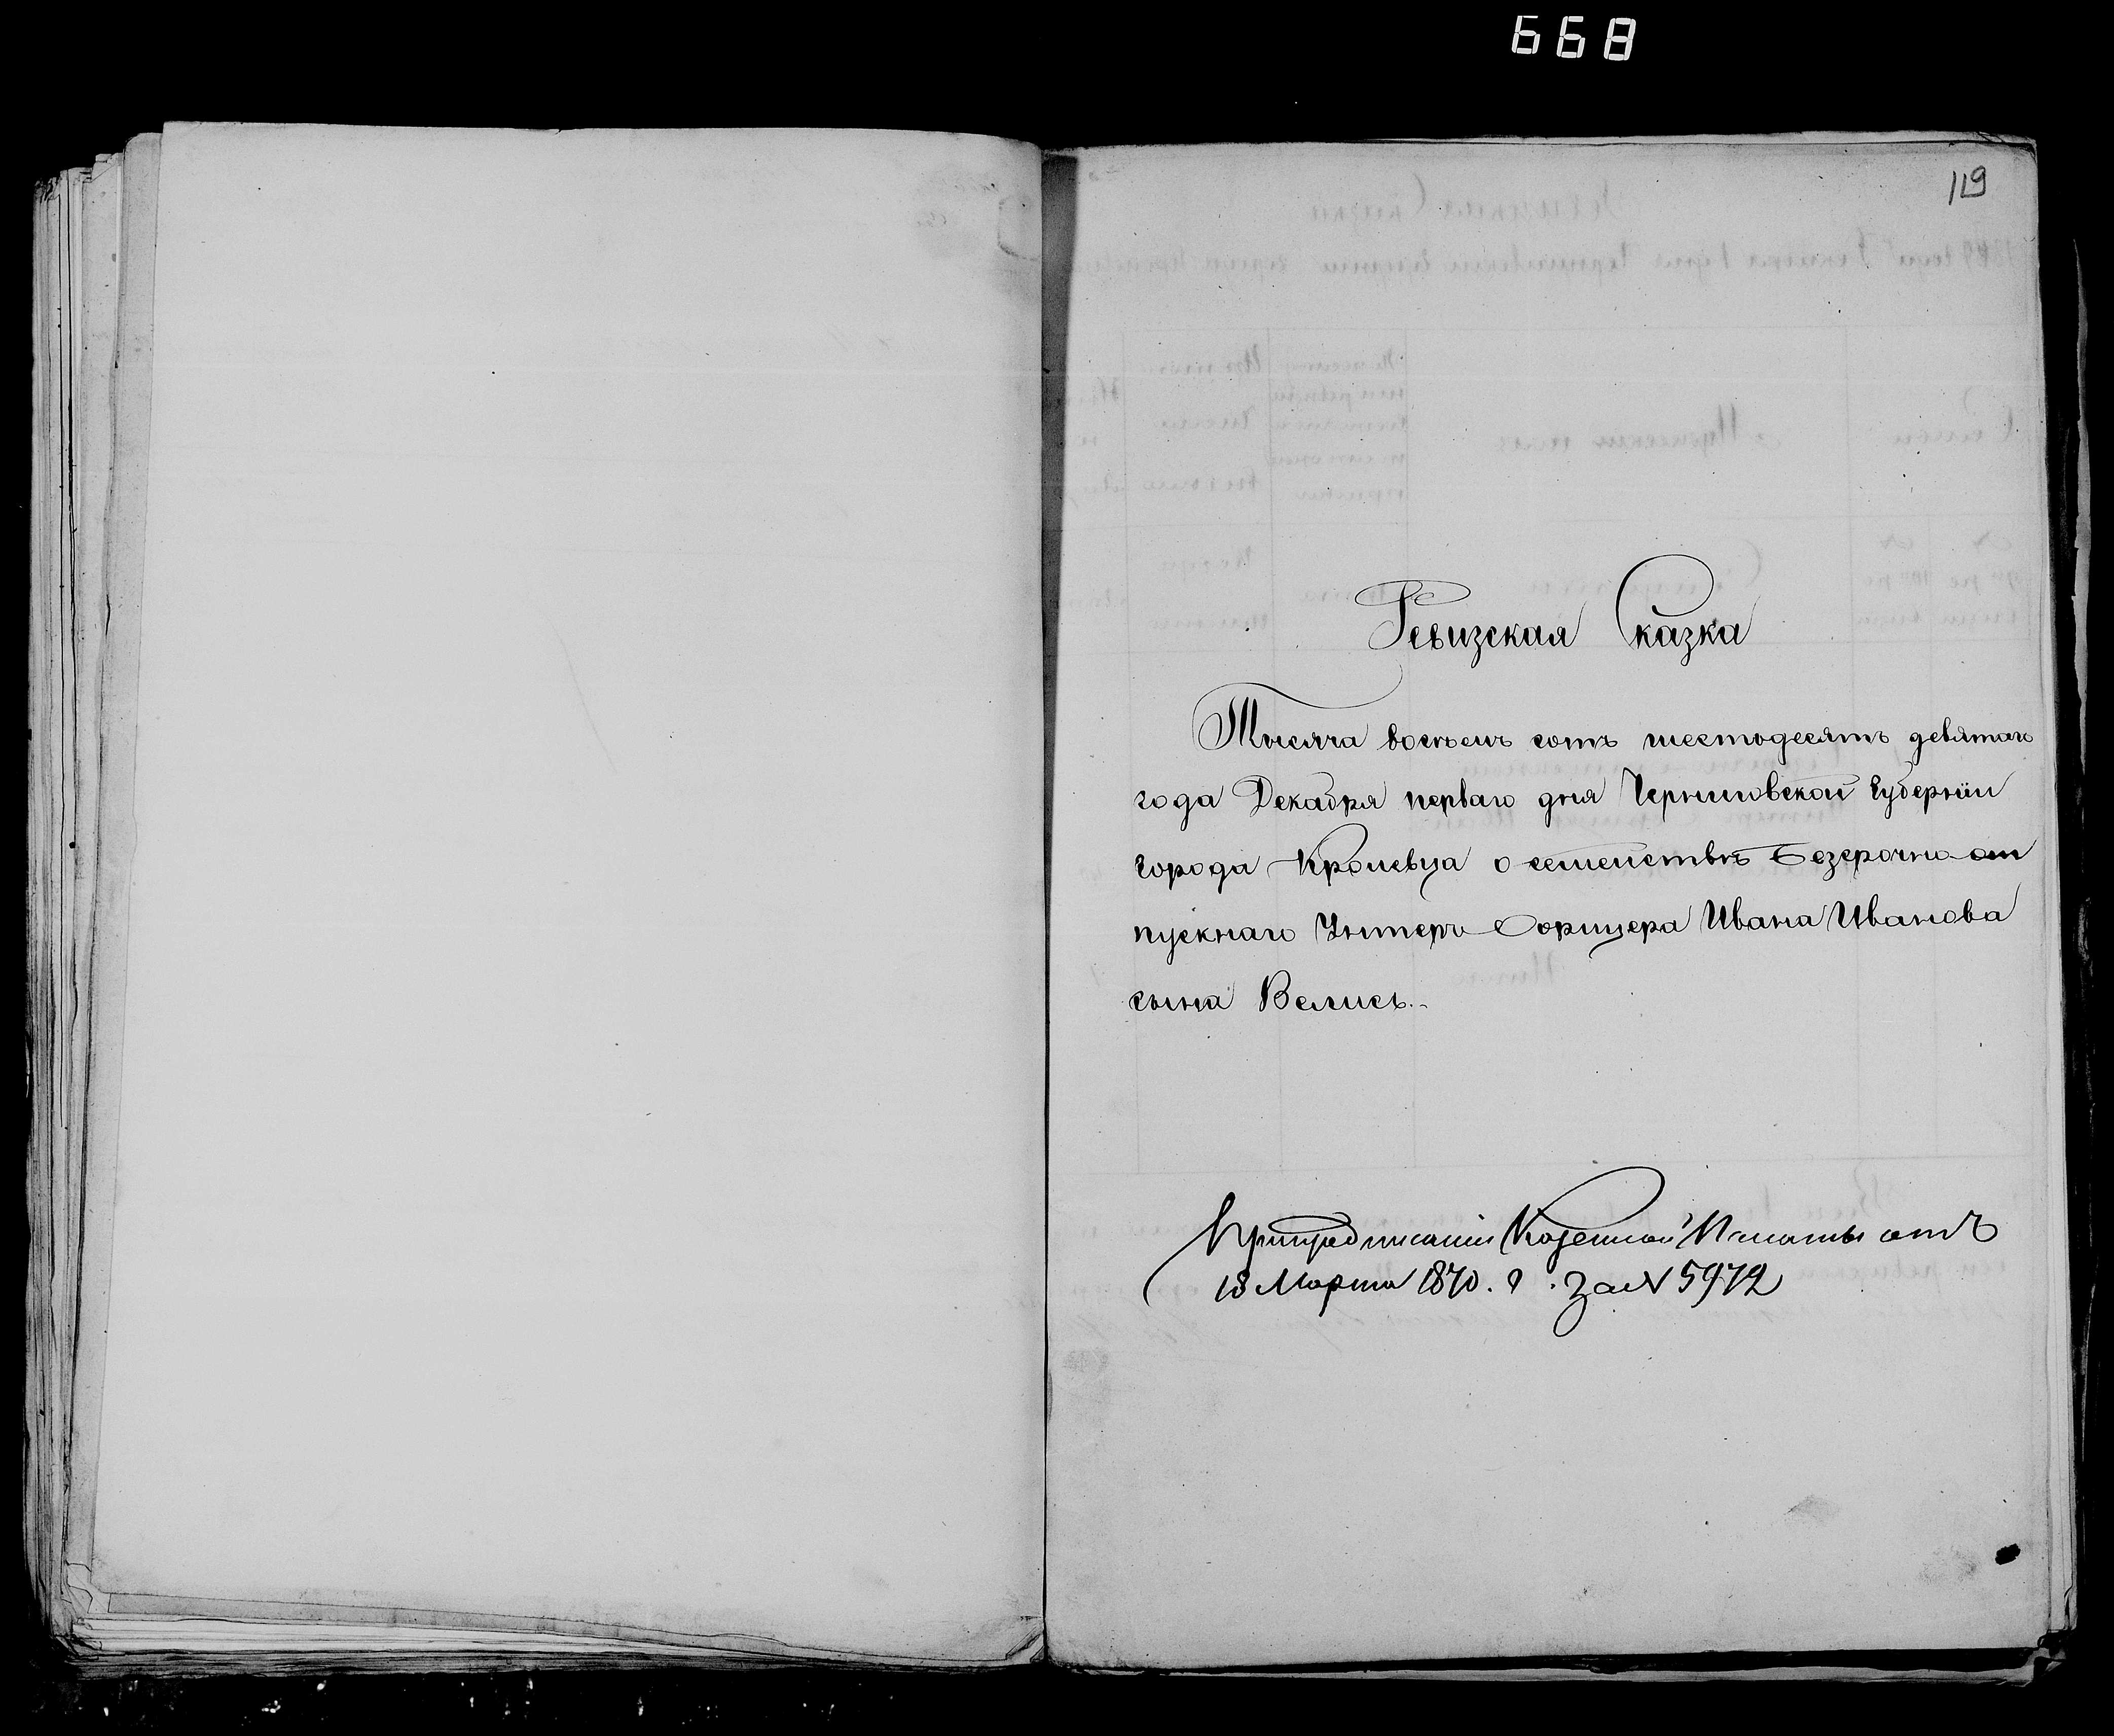 668
119
Ревизская Сказка
Тысяча восъемъ сотъ шестодесятъ девятаго
года Декабря перваго дня Черниговской Губерніи
города Кролевца о семействѣ Безерочно-от
пускнаго Унтеръ-Офицера Ивана Иванова
сына Велисъ.
При предписаніи Казенной Палаты отъ
18 Марта 1870. г. За N 5972